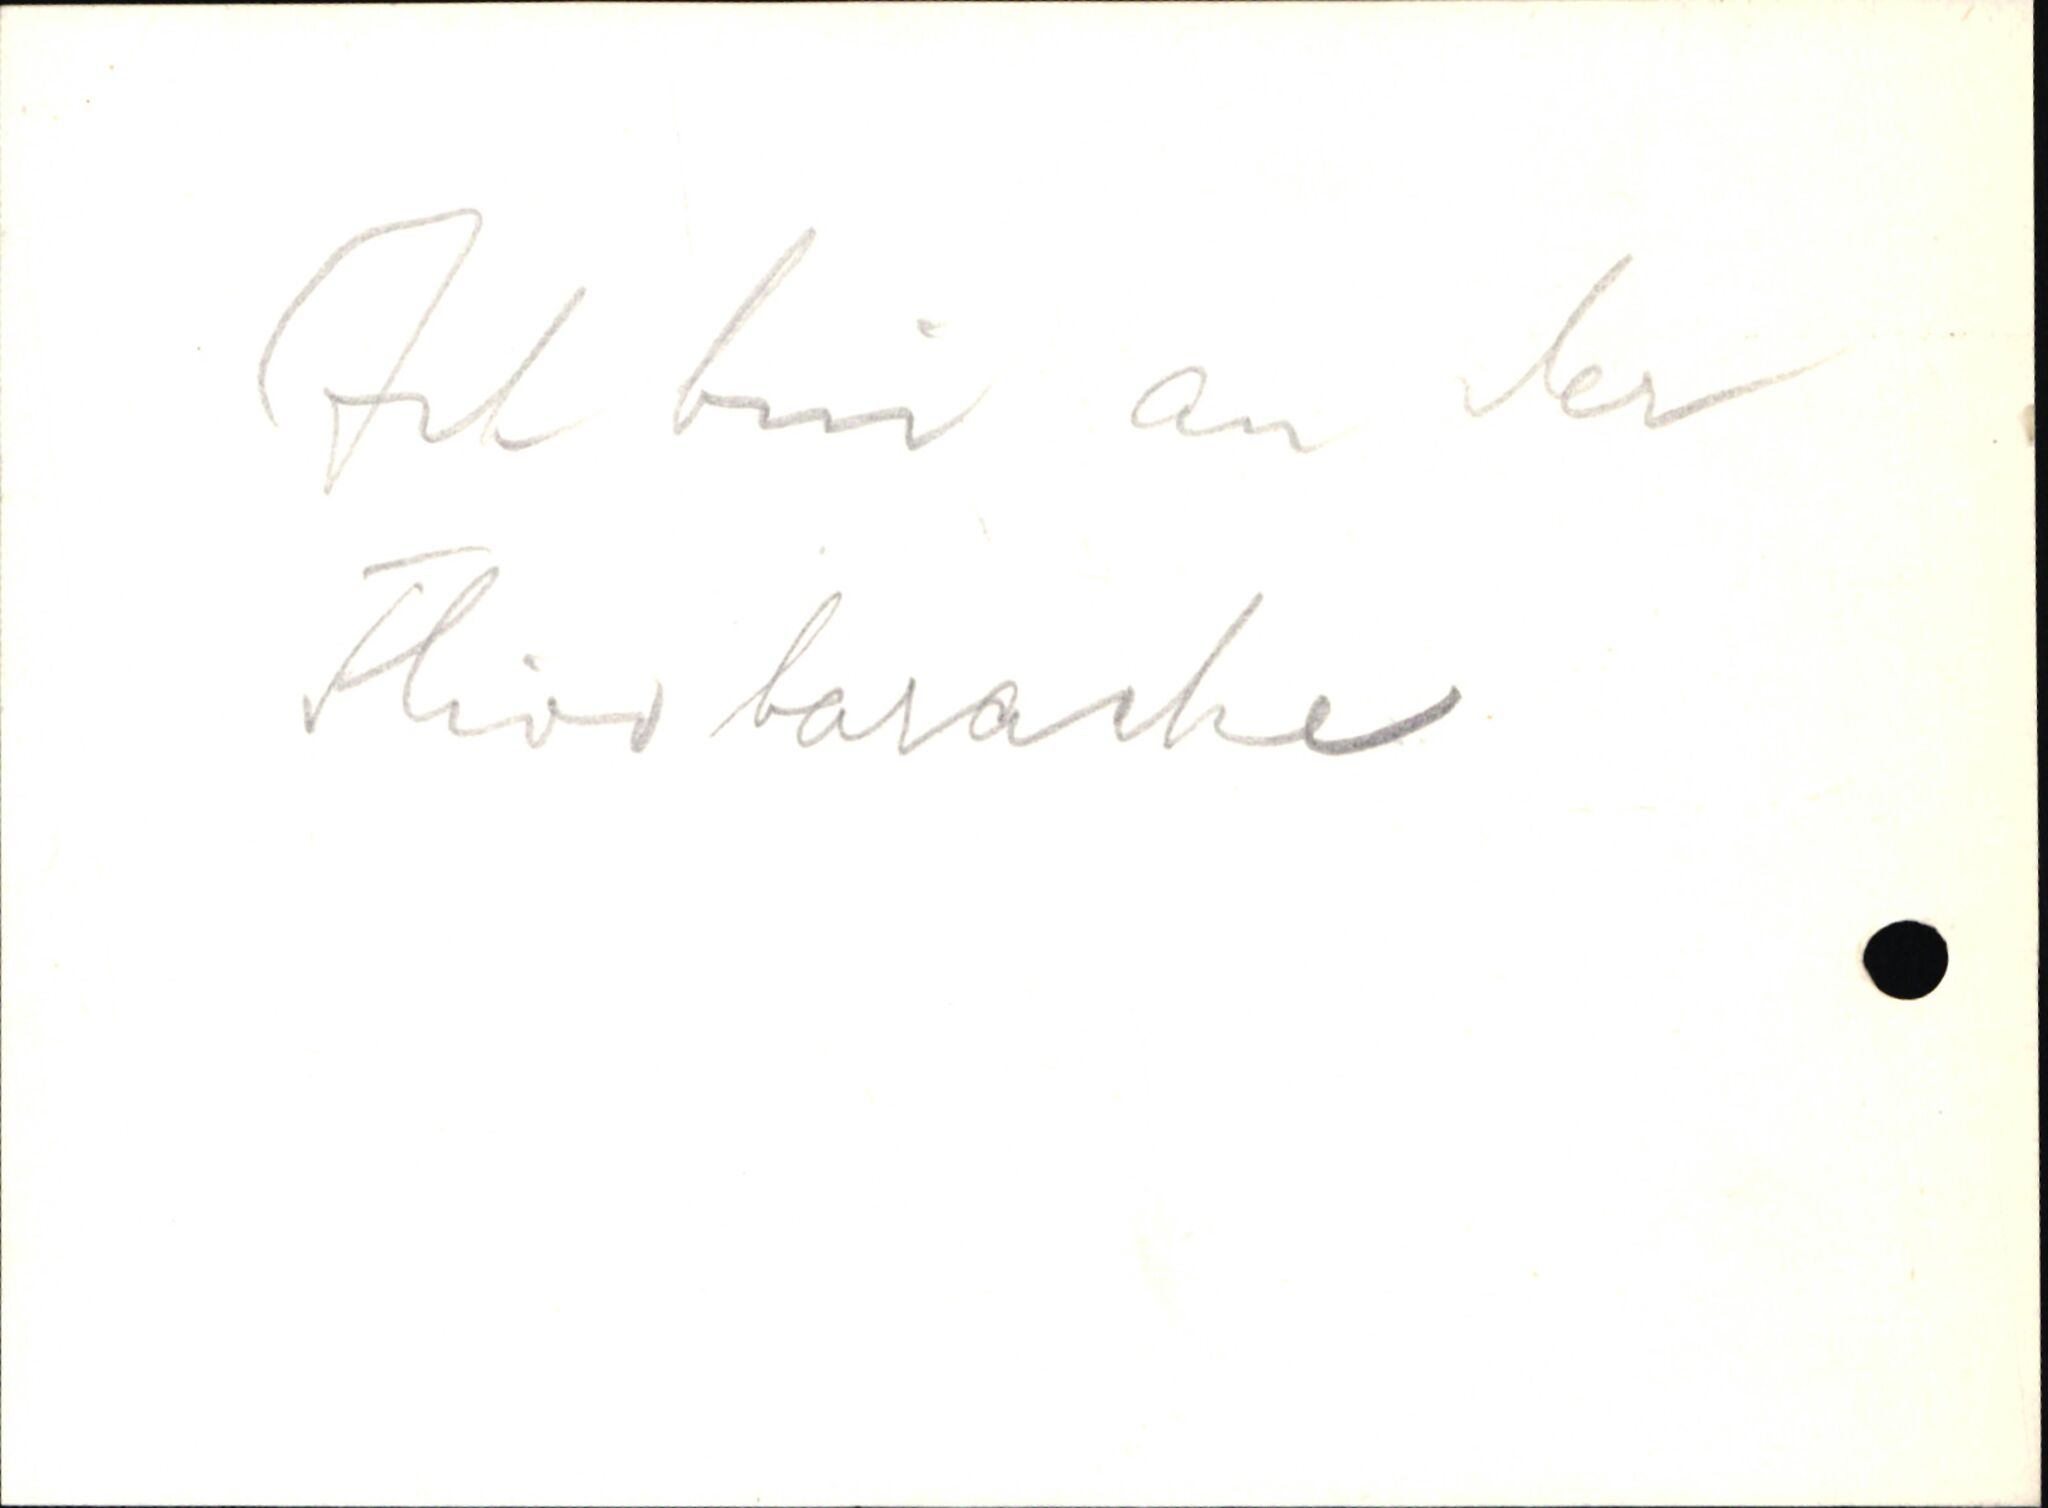 Ich bin an der
Flivobaracke